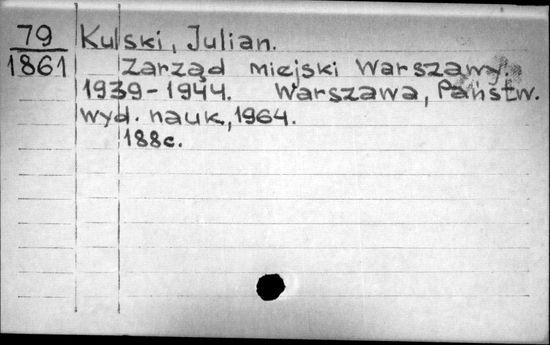 79
1861
Kulski, Julian.
Zarząd miejski Warszawy.
1939-1944. Warszawa, Państw.
wyd. nauk, 1964.
188c.